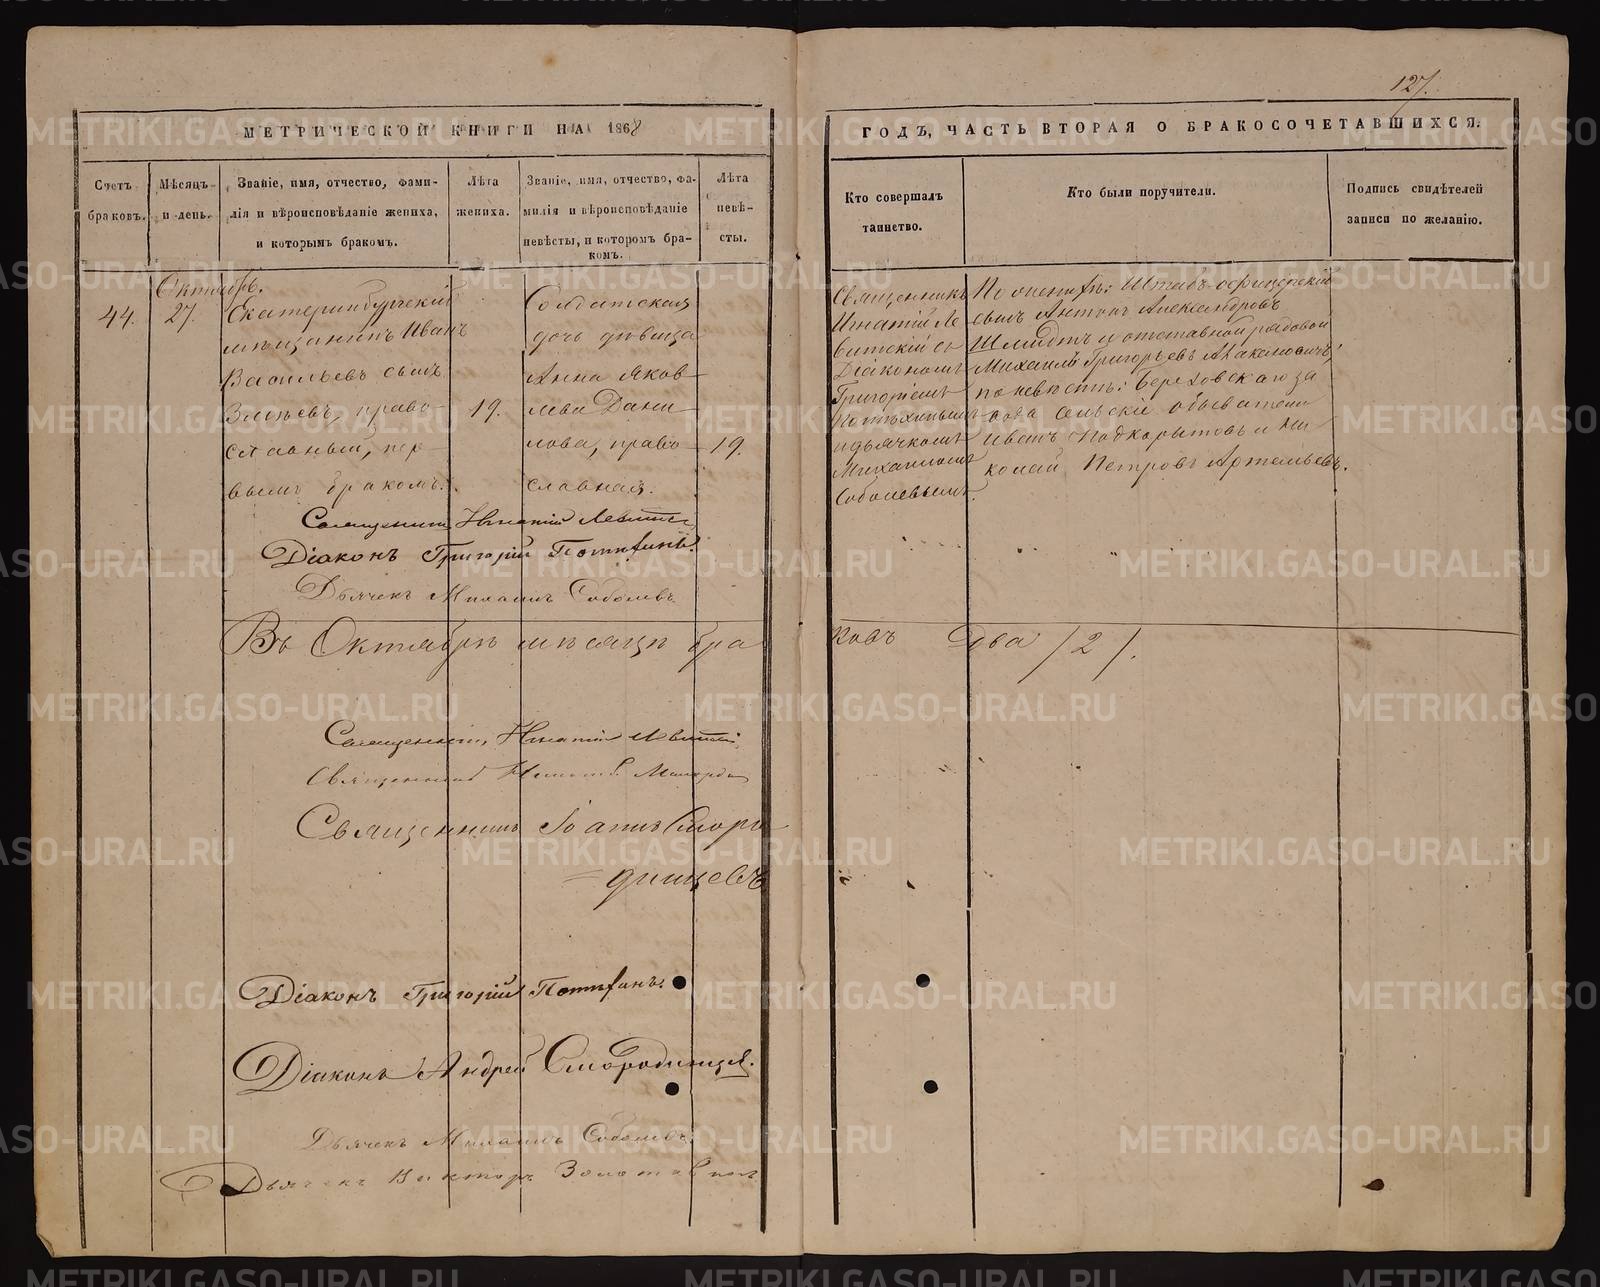 127.
МЕТРИЧЕСКОЙ КНИГИ НА 1868
ГОДЪ, ЧАСТЬ ВТОРАЯ О БРАКОСОЧЕТАВШИХСЯ.
Счетъ
браковъ.
Мѣсяцъ
и день.
Званіе, имя, отчество, фами-
лія и вѣроисповѣданіе жениха,
и которымъ бракомъ.
Лѣта
жениха.
Званіе, имя, отчество, фа-
милія и вѣроисповѣданіе
невѣсты, и которомъ бра-
комъ.
Лѣта
невѣ-
сты.
Кто совершалъ
таинство.
Кто были поручители.
Подпись свидѣтелей
записи по желанію.
44.
Октябрь.
27.
Екатеринбургскій
мѣщанинъ Иванъ
Васильевъ сынъ
право-
славный, пер-
вымъ бракомъ.
19.
Солдатская
дочь дѣвица
Анна Яков-
лева Дани-
лова, право-
славная.
19.
Священникъ
Игнатій Ле-
витскій съ
Діакономъ
Григоріемъ
Потѣхинымъ
и дьячкомъ
Михаиломъ
Соболевымъ.
По женихѣ: Штабъ-офицерскій
сынъ Антонъ Александровъ
Шмидтъ и отставной рядовой
Михаилъ Григорьевъ
по невѣстѣ: Березовскаго за-
вода сельскіе обыватели
Иванъ Подкорытовъ и Ни-
колай Петровъ Артемьевъ.
Священникъ Игнатій Левитскій
Діаконъ Григорій Потѣхинъ.
Дьячекъ Михаилъ Соболевъ
Въ Октябрѣ мѣсяцѣ бра-
ковъ Два /2/.
Священникъ Игнатій Левитскій
Священникъ
Священникъ Іоаннъ Сморо-
динцевъ
Діаконъ Григорій Потѣхинъ.
Діаконъ Андрей Смородинцевъ.
Дьячекъ Михаилъ Соболевъ.
Дьячекъ Викторъ
METRIKI.GASO-URAL.RU